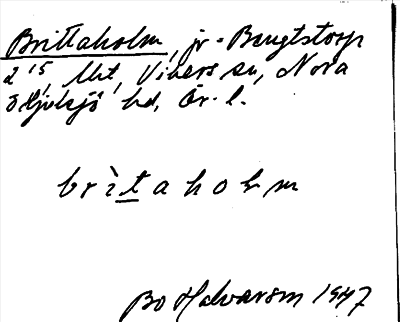 Brittaholm, jr = Bengtstorp
2 15, Uht, Vikers sn, Nora
o Hjulsjö hd, Ör. l.
brìtaholm
Bo Halvarson 1947